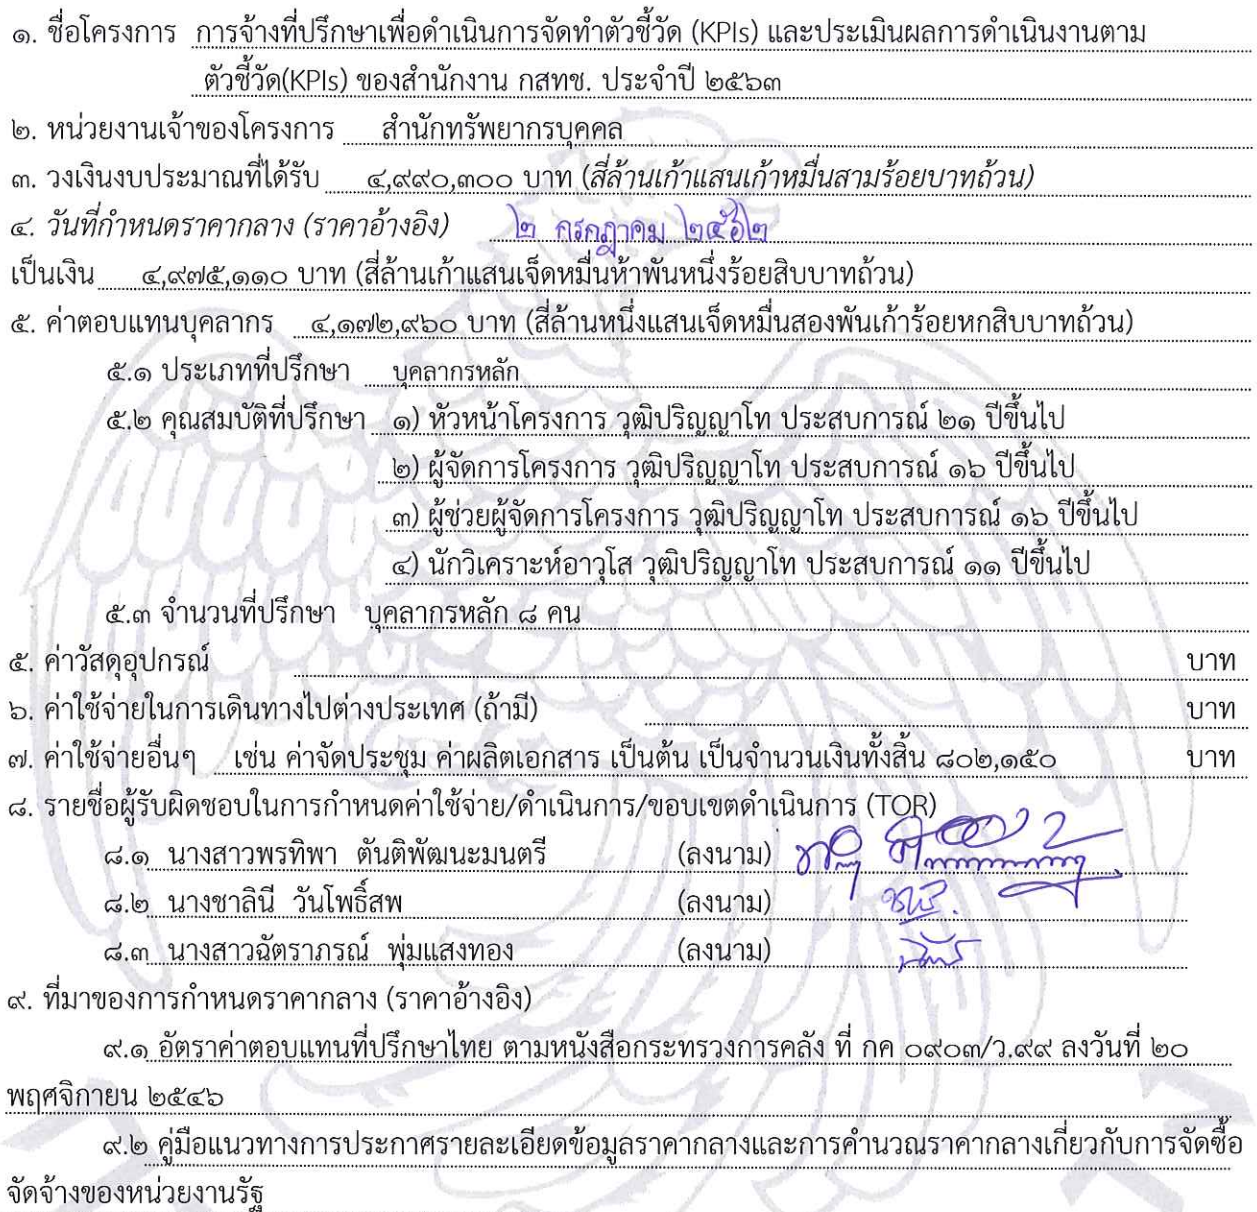 ๑. ชื่อโครงการ การจ้างที่ปรึกษาเพื่อดำเนินการจัดทำตัวชี้วัด (KPIs) และประเมินผลการดำเนินงานตาม
ตัวชี้วัด(KPIs) ของสำนักงาน กสทช. ประจำปี ๒๕๖๓
๒. หน่วยงานเจ้าของโครงการ สำนักทรัพยากรบุคคล
๓. วงเงินงบประมาณที่ได้รับ ๔,๙๙๐,๓๐๐ บาท (สี่ล้านเก้าแสนเก้าหมื่นสามร้อยบาทถ้วน)
๔. วันที่กำหนดราคากลาง (ราคาอ้างอิง) ๒ กรกฎาคม ๒๕๖๒
เป็นเงิน ๔,๙๗๕,๑๑๐ บาท (สี่ล้านเก้าแสนเจ็ดหมื่นห้าพันหนึ่งร้อยสิบบาทถ้วน)
๕. ค่าตอบแทนบุคลากร ๔,๑๗๒,๙๖๐ บาท (สี่ล้านหนึ่งแสนเจ็ดหมื่นสองพันเก้าร้อยหกสิบบาทถ้วน)
๕.๑ ประเภทที่ปรึกษา บุคลากรหลัก
๕.๒ คุณสมบัติที่ปรึกษา ๑) หัวหน้าโครงการ วุฒิปริญญาโท ประสบการณ์ ๒๑ ปีขึ้นไป
๒) ผู้จัดการโครงการ วุฒิปริญญาโท ประสบการณ์ ๑๖ ปีขึ้นไป
๓) ผู้ช่วยผู้จัดการโครงการ วุฒิปริญญาโท ประสบการณ์ ๑๖ ปีขึ้นไป
๔) นักวิเคราะห์อาวุโส วุฒิปริญญาโท ประสบการณ์ ๑๑ ปีขึ้นไป
๕.๓ จำนวนที่ปรึกษา บุคลากรหลัก ๘ คน
๕. ค่าวัสดุอุปกรณ์ บาท
๖. ค่าใช้จ่ายในการเดินทางไปต่างประเทศ (ถ้ามี) บาท
๗. ค่าใช้จ่ายอื่นๆ เช่น ค่าจัดประชุม ค่าผลิตเอกสาร เป็นต้น เป็นจำนวนเงินทั้งสิ้น ๘๐๒,๑๕๐ บาท
๘. รายชื่อผู้รับผิดชอบในการกำหนดค่าใช้จ่าย/ดำเนินการ/ขอบเขตดำเนินการ (TOR)
๘.๑ นางสาวพรทิพา ตันติพัฒนะมนตรี (ลงนาม)
๘.๒ นางชาลินี วันโพธิ์สพ (ลงนาม)
๘.๓ นางสาวฉัตราภรณ์ พุ่มแสงทอง (ลงนาม)
๙. ที่มาของการกำหนดราคากลาง (ราคาอ้างอิง)
๙.๑ อัตราค่าตอบแทนที่ปรึกษาไทย ตามหนังสือกระทรวงการคลัง ที่ กค ๐๙๐๓/ว.๙๙ ลงวันที่ ๒๐
พฤศจิกายน ๒๕๔๖
๙.๒ คู่มือแนวทางการประกาศรายละเอียดข้อมูลราคากลางและการคำนวณราคากลางเกี่ยวกับการจัดซื้อ
จัดจ้างของหน่วยงานรัฐ